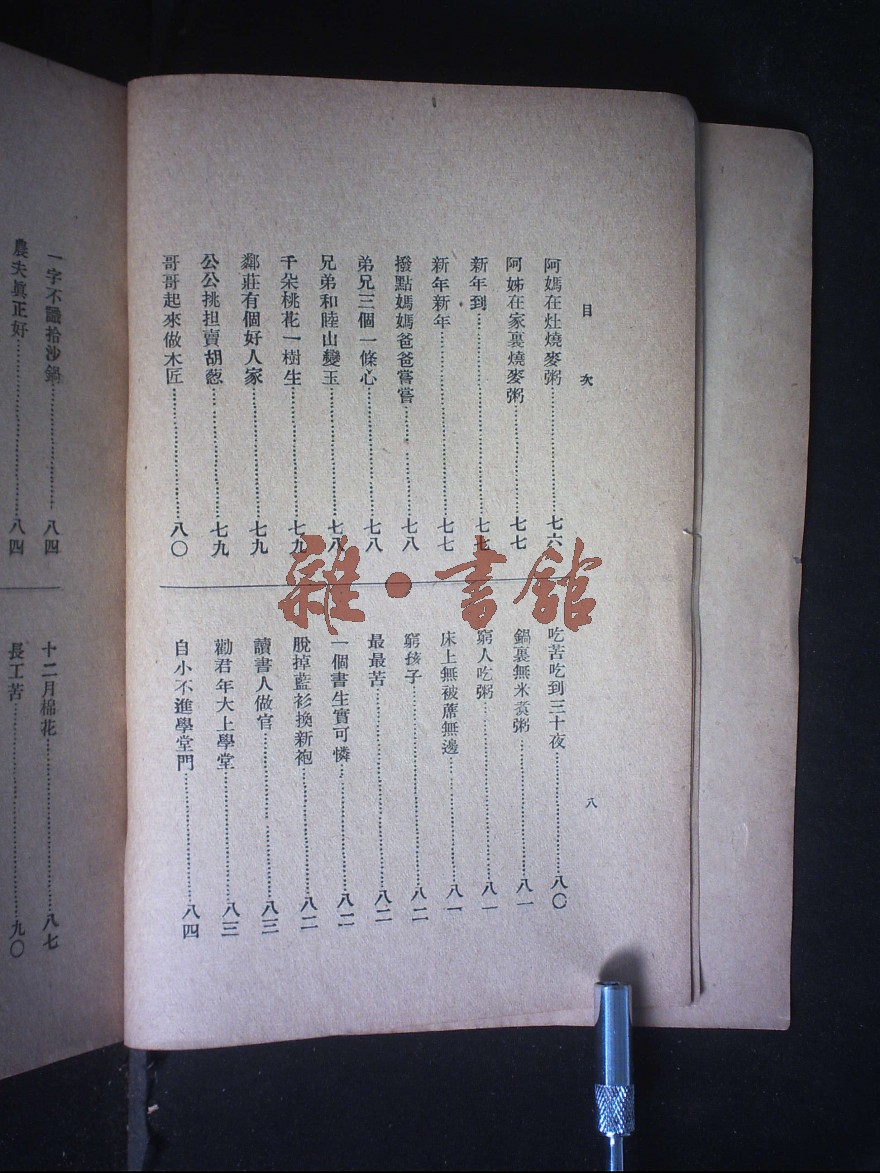 目次
八
阿媽在灶燒麥粥…………七六
阿姊在家裏燒麥粥…………七七
新年到…………七七
新年新年…………七七
撥點媽媽爸爸嘗嘗…………七八
弟兄三個一條心…………七八
兄弟和睦山變玉…………七八
千朵桃花一樹生…………七九
鄰莊有個好人家…………七九
公公挑担賣胡蔥…………七九
哥哥起來做木匠…………八〇
吃苦吃到三十夜…………八〇
鍋裏無米煑粥…………八一
窮人吃粥…………八一
床上無被蓆無邊…………八一
窮孩子…………八二
最最苦…………八二
一個書生實可憐…………八二
脫掉藍衫換新袍…………八二
讀書人做官…………八三
勸君年大上學堂…………八三
自小不進學堂門…………八四
一字不識拾沙鍋…………八四
農夫眞正好…………八四
十二月棉花…………八七
長工苦…………九〇
雜·書館